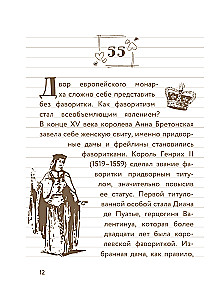 55
Двор европейского монар-
ха сложно себе представить
без фаворитки. Как фаворитизм
стал всеобъемлющим явлением?
В конце XV века королева Анна Бретонская
завела себе женскую свиту, именно придвор-
ные дамы и фрейлины становились
фаворитками. Король Генрих II
(1519–1559) сделал звание фа-
воритки придворным титу-
лом, значительно повысив
ее статус. Первой титуло-
ванной особой стала Диана
де Пуатье, герцогиня Ва-
лентинуа, которая более
двадцати лет была коро-
левской фавориткой. Из-
бранная дама, как правило,
12